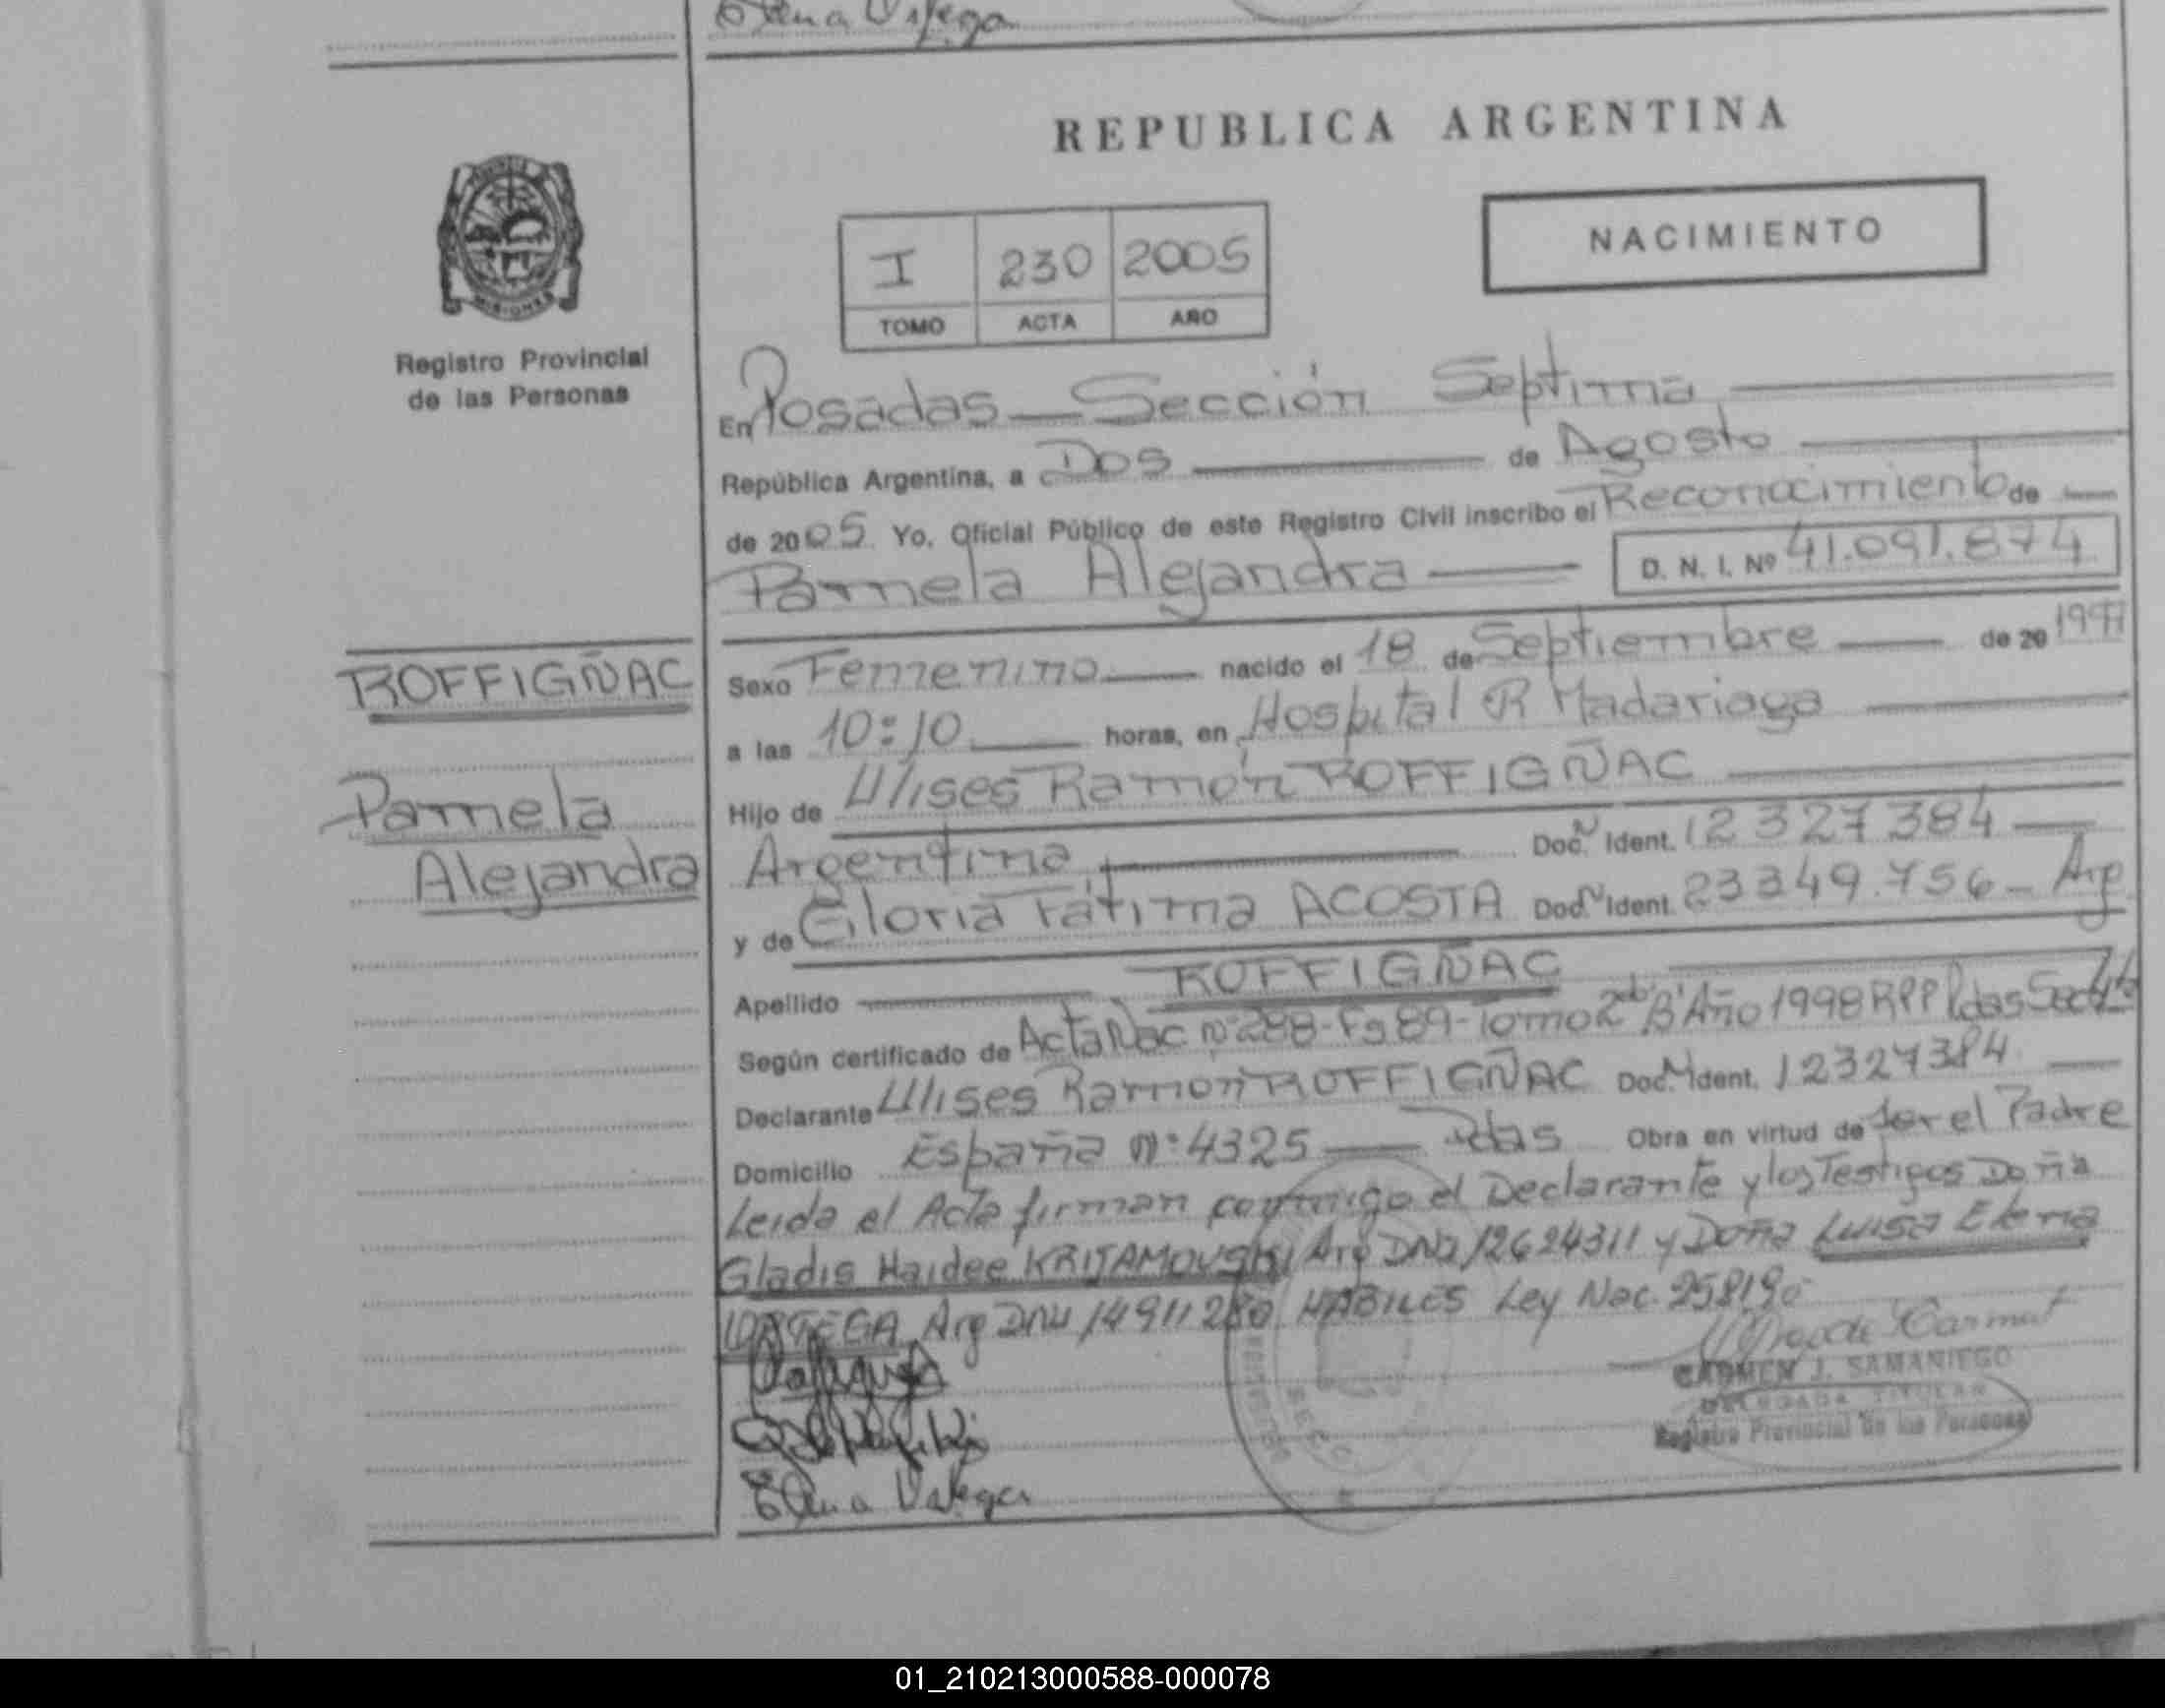 Elena
REPUBLICA ARGENTINA
NACIMIENTO
I 230 2005
TOMO ACTA AÑO
MISIONES
Registro Provincial
de las Personas
En Posadas Sección Septima
República Argentina, a Dos de Agosto
de 2005 Yo, Oficial Público de este Registro Civil inscribo el Reconocimiento de
Pamela Alejandra D. N. I. Nº 41.091.874
ROFFIGÑAC
Pamela
Alejandra
Sexo Femenino nacido el 18 de Septiembre de 20
a las 10:10 horas, en Hospital R Madariaga
Hijo de Ulises Ramón ROFFIGÑAC
Argentina Doc. N Ident. 12327384
y de Gloria Fátima ACOSTA Doc. N Ident. 23349.756 - Arg
Apellido ROFFIGÑAC
Según certificado de Acta Nac Nº 288-Fº 89-Tomo 2 "B" Año 1998 RPP Pdas Sec
Declarante Ulises Ramón ROFFIGÑAC Doc. N Ident. 12327384
Domicilio España Nº 4325 Pdas Obra en virtud de ser el Padre
Leida el Acta firman conmigo el Declarante y los Testigos Doña
Gladis Haidee Arg DNI 12624311 y Doña Luisa Elena
Arg DNI 14911280 HABILES Ley Nac. 25819
CARMEN J. SAMANIEGO
DELEGADA TITULAR
Registro Provincial de las Personas
Elena
01_210213000588-000078